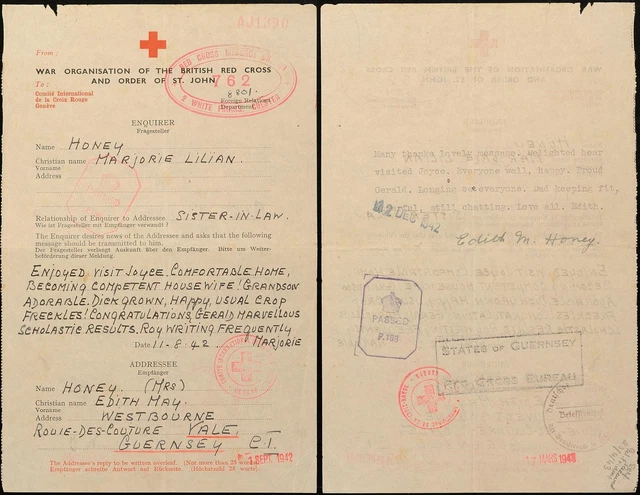 From:
WAR ORGANISATION OF THE BRITISH RED CROSS
AND ORDER OF ST. JOHN
To:
Comité International
de la Croix Rouge
Genève
RED CROSS MESSAGE
762
8801.
Foreign Relations
Department.
ENQUIRER
Fragesteller
Name HONEY
Christian name MARJORIE LILIAN.
Vorname
Address
Relationship of Enquirer to Addressee SISTER-IN-LAW.
Wie ist Fragesteller mit Empfänger verwandt?
The Enquirer desires news of the Addressee and asks that the following
message should be transmitted to him.
Der Fragesteller verlangt Auskunft über den Empfänger. Bitte um Weiter-
beförderung dieser Meldung.
ENJOYED VISIT JOYCE. COMFORTABLE HOME,
BECOMING COMPETENT HOUSEWIFE! GRANDSON
ADORABLE. DICK GROWN, HAPPY, USUAL CROP
FRECKLES! CONGRATULATIONS, GERALD MARVELLOUS
SCHOLASTIC RESULTS. ROY WRITING FREQUENTLY
MARJORIE
Date 11-8-42
ADDRESSEE
Empfänger
Name HONEY. (MRS)
Christian name EDITH MAY.
Vorname
Address WESTBOURNE
ROUIE-DES-COUTURE VALE,
GUERNSEY C.I.
SEPT. 1942
The Addressee's reply to be written overleaf. (Not more than 25 words).
Empfänger schreibe Antwort auf Rückseite. (Höchstzahl 25 worte).
Many thanks lovely message. Delighted hear
visited Joyce. Everyone well, happy. Proud
Gerald. Longing see everyone. Dad keeping fit,
still chatting. Love all. Edith.
DEC 1942
Edith M. Honey.
PASSED
P.168
STATES OF GUERNSEY
RED CROSS BUREAU
MARS 1943